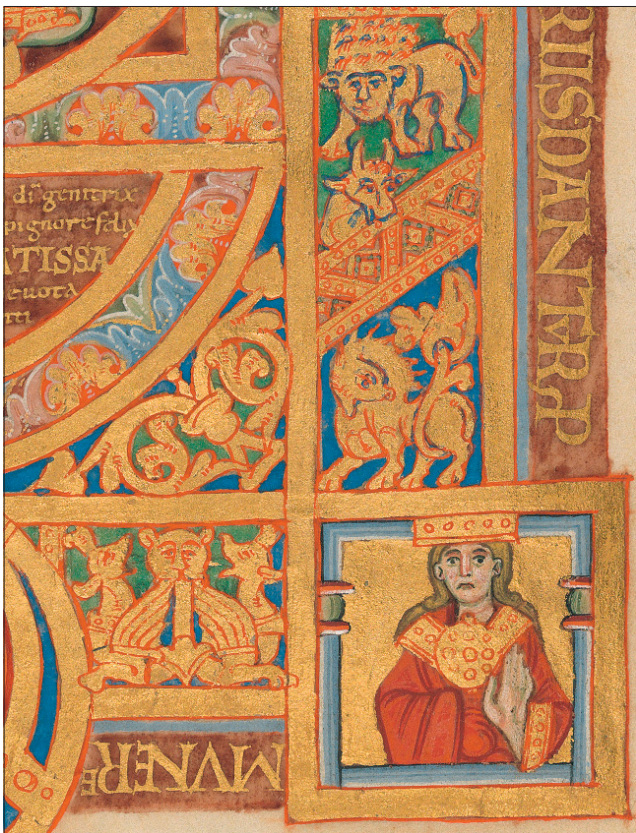 dī genitrix
pignore felix
ATISSA
euota
tti
RIISDANTERP
MVNERE